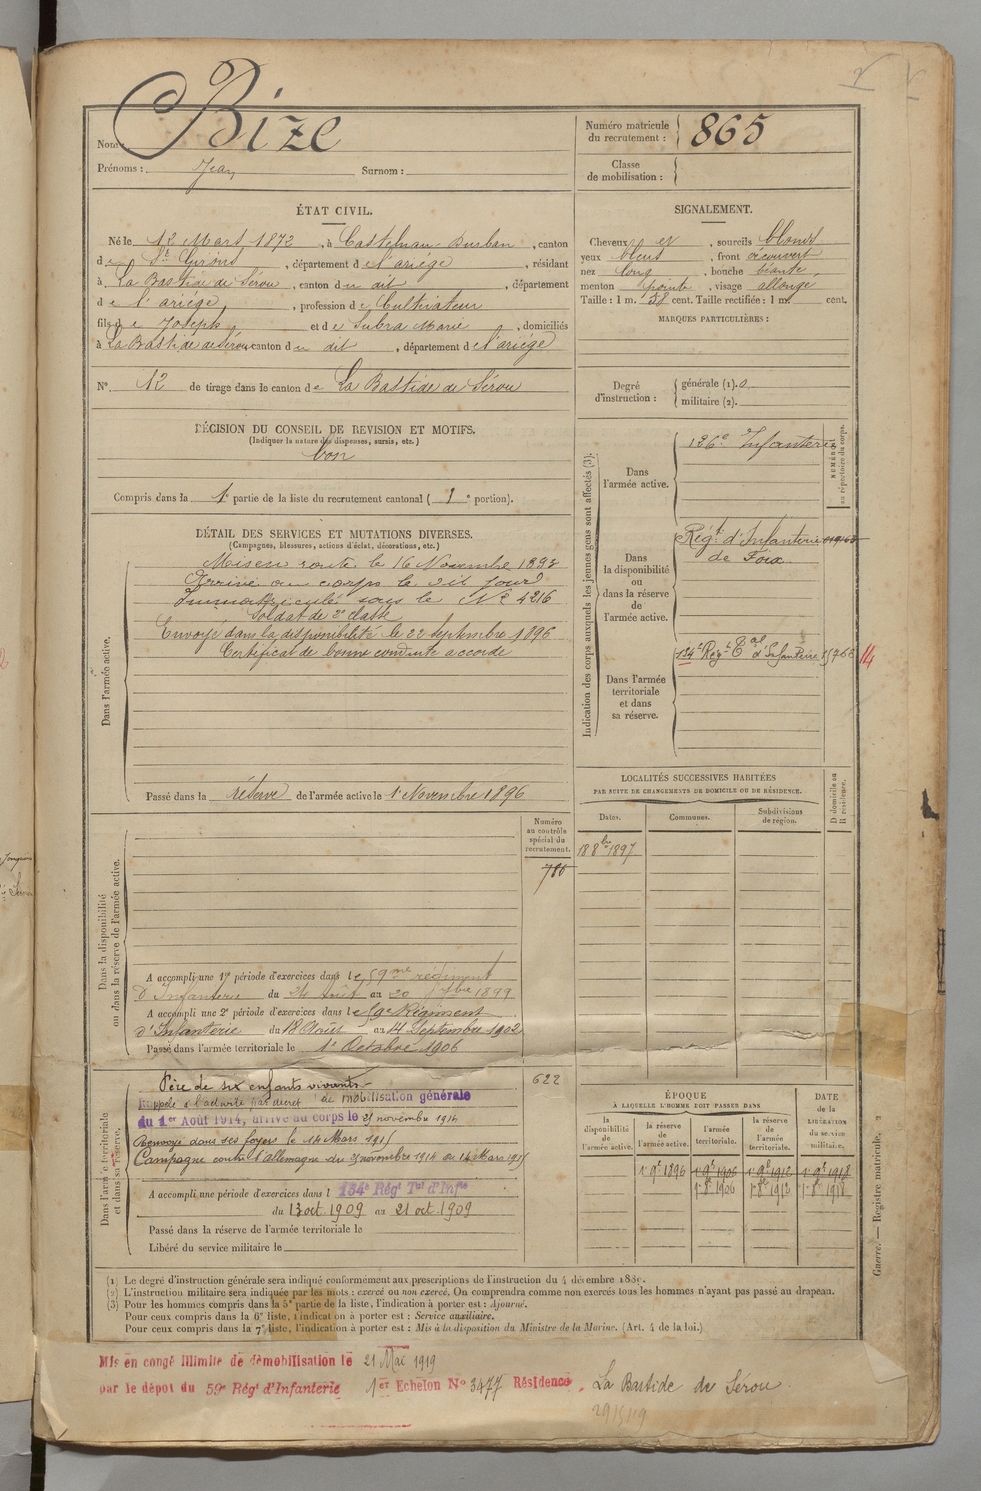 Bize
Nom :
Prénoms : Jean Surnom :
Numéro matricule
du recrutement : 865
Classe
de mobilisation :
ÉTAT CIVIL.
Né le 12 Mars 1872, à Castelnau-Durban, canton
de St Girons, département de l'ariége, résidant
à La Bastide de Sérou, canton du dit, département
de l'ariége, profession de Cultivateur
fils de Joseph et de Subra Marie, domiciliés
à La Bastide de Sérou canton du dit, département de l'ariége
N° 12 de tirage dans le canton de La Bastide de Sérou
DÉCISION DU CONSEIL DE REVISION ET MOTIFS.
(Indiquer la nature des dispenses, sursis, etc.)
bon
Compris dans la 1e partie de la liste du recrutement cantonal (1e portion).
SIGNALEMENT.
Cheveux et, sourcils blonds
yeux bleus, front découvert
nez long, bouche béante,
menton pointe, visage allongé
Taille : 1 m. 58 cent. Taille rectifiée : 1 m. cent.
MARQUES PARTICULIÈRES :
Degré
d'instruction :
générale (1). 0
militaire (2).
DÉTAIL DES SERVICES ET MUTATIONS DIVERSES.
(Campagnes, blessures, actions d'éclat, décorations, etc.)
Dans l'armée active.
Mis en route le 16 Novembre 1893
Arrivé au corps le dit jour
Immatriculé sous le N° 4216
Soldat de 2e classe
Envoyé dans la disponibilité le 22 septembre 1896
Certificat de bonne conduite accordé
Passé dans la réserve de l'armée active le 1 Novembre 1896
Indication des corps auxquels les jeunes gens sont affectés (3).
NUMÉRO
au répertoire du corps.
Dans
l'armée active.
126e Infanterie
Dans
la disponibilité
ou
dans la réserve
de
l'armée active.
Régt d'Infanterie
de Foix
Dans l'armée
territoriale
et dans
sa réserve.
134e Régt Tal d'Infanterie 15766 14
LOCALITÉS SUCCESSIVES HABITÉES
PAR SUITE DE CHANGEMENTS DE DOMICILE OU DE RÉSIDENCE.
Dates. Communes. Subdivisions
de région.
D domicile ou
R résidence.
18 8bre 1897
Dans la disponibilité
ou dans la réserve de l'armée active.
Numéro
au contrôle
spécial du
recrutement.
780
A accompli une 1re période d'exercices dans le 59me régiment
d'Infanterie du 24 Août au 20 7bre 1899
A accompli une 2e période d'exercices dans le 59e Régiment
d'Infanterie du 18 Août au 14 Septembre 1902
Passé dans l'armée territoriale le 1er Octobre 1906
Dans l'armée territoriale
et dans sa réserve.
622
Père de six enfants vivants
Rappelé à l'activité par décret de mobilisation générale
du 1er Août 1914, arrivé au corps le 21 novembre 1914
Renvoyé dans ses foyers le 14 Mars 1915
Campagne contre l'allemagne du 21 novembre 1914 au 14 Mars 1915
A accompli une période d'exercices dans l 134e Régt Tal d'Infie
du 13 oct. 1909 au 21 oct. 1909
Passé dans la réserve de l'armée territoriale le
Libéré du service militaire le
ÉPOQUE
À LAQUELLE L'HOMME DOIT PASSER DANS
la
disponibilité
de
l'armée active.
la réserve
de
l'armée active.
l'armée
territoriale.
la réserve
de
l'armée
territoriale.
DATE
de la
LIBÉRATION
du service
militaire.
1 9e 1896 1 9e 1906 1 9e 1912 1 9e 1918
1 8e 1906 1 8e 1912 1 8e 1918
Guerre. — Registre matricule. 2
(1) Le degré d'instruction générale sera indiqué conformément aux prescriptions de l'instruction du 4 décembre 1889.
(2) L'instruction militaire sera indiquée par les mots : exercé ou non exercé. On comprendra comme non exercés tous les hommes n'ayant pas passé au drapeau.
(3) Pour les hommes compris dans la 5e partie de la liste, l'indication à porter est : Ajourné.
Pour ceux compris dans la 6e liste, l'indication à porter est : Service auxiliaire.
Pour ceux compris dans la 7e liste, l'indication à porter est : Mis à la disposition du Ministre de la Marine. (Art. 4 de la loi.)
Mis en congé illimité de démobilisation le 21 Mai 1919
par le dépôt du 59e Régt d'Infanterie 1er Echelon N° 3477 Résidence, La Bastide de Sérou
29/5/19